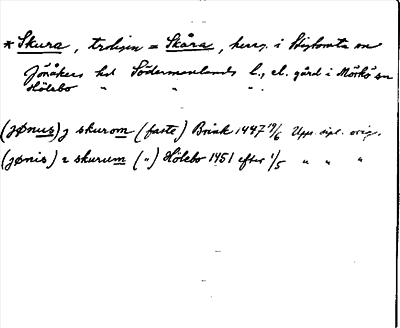 * Skura, troligen = Skåra, herrg. i Stigtomta sn
Jönåkers hd Södermanlands l., el. gård i Mörkö sn
Hölebo " " "
(jønus) j skurom (faste) Brink 1447 19/6 Upps. dipl. orig.
(jønis) i skurum (") Hölebo 1451 efter 1/5 " " "